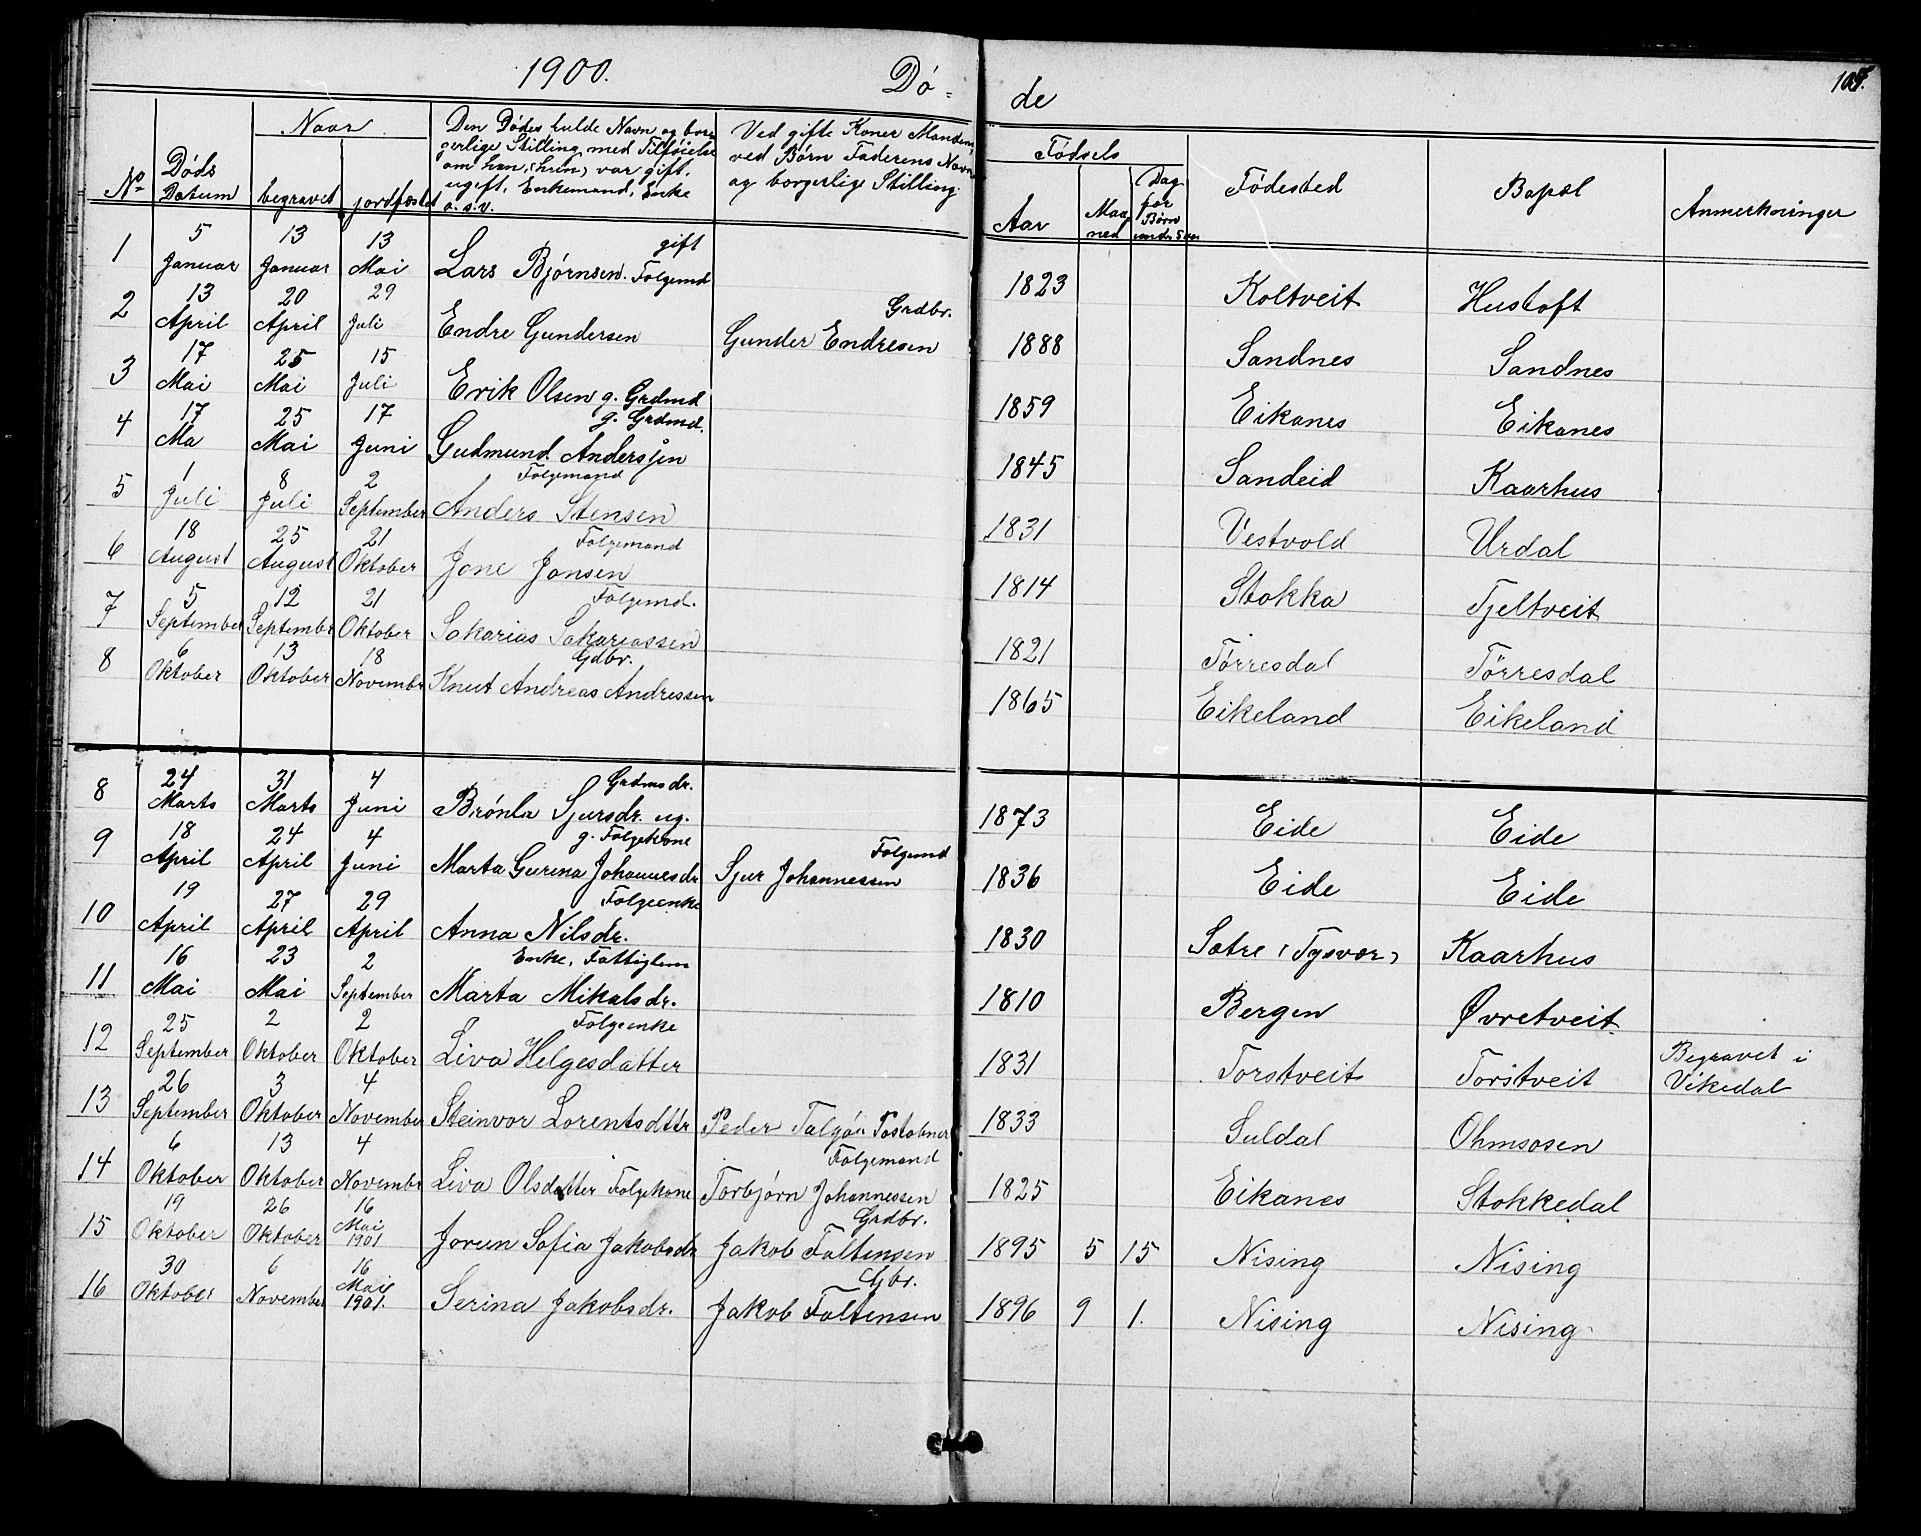 1900.
Dö-
de
No
Døds Datum
Naar
begravet
jordfæstet
Den Dødes fulde Navn og bor-
gerlige Stilling med Tilføielse
om han (hun) var gift,
ugift, Enkemand, Enke
o.s.v.
Ved gifte Koner Mandens,
ved Børn Faderens Navn
og borgerlige Stilling.
Fødsels
Aar
Maa-
ned
Dag
for
Børn
under 5 aar
Fødested
Bopæl
Anmerkninger
1 5 Januar 13 Januar 13 Mai Lars Bjørnsen. gift Folgemd 1823 Koltveit Hustoft
2 13 April 20 April 29 Juli Endre Gundersen Gunder Endresen Grdbr. 1888 Sandnes Sandnes
3 17 Mai 25 Mai 15 Juli Erik Olsen g. Grdmd 1859 Eikanes Eikanes
4 17 Ma 25 Mai 17 Juni Gudmund Andersen g. Grdmd. 1845 Sandeid Kaarhus
5 1 Juli 8 Juli 2 September Anders Stensen Folgemand 1831 Vestvold Urdal
6 18 August 25 August 21 Oktober Jone Jonsen Folgemand 1814 Stokka Tjeltveit
7 5 September 12 September 21 Oktober Sakarias Sakariassen Folgemd. 1821 Tørresdal Tørresdal
8 6 Oktober 13 Oktober 18 November Knut Andreas Andressen Gdbr. 1865 Eikeland Eikeland
8 24 Marts 31 Marts 4 Juni Brónla Sjursdr. ug. Grdmsdr. 1873 Eide Eide
9 18 April 24 April 4 Juni Marta Gurina Johannesdr g. Folgekone Sjur Johannessen Folgemd 1836 Eide Eide
10 19 April 27 April 29 April Anna Nilsdr. Folgeenke 1830 Sætre (Tysvær) Kaarhus
11 16 Mai 23 Mai 2 September Marta Mikalsdr. Enke, Fattiglem 1810 Bergen Øvretveit
12 25 September 2 Oktober 2 Oktober Liva Helgesdatter Folgeenke 1831 Torstveit Torstveit Begravet i Vikedal
13 26 September 3 Oktober 4 November Steinvor Lorentsdttr Peder Talgø 1833 Suldal Ohmsosen
14 6 Oktober 13 Oktober 4 November Liva Olsdatter Folgekone Torbjørn Johannessen Folgemand 1825 Eikanes Stokkedal
15 19 Oktober 26 Oktober 16 Mai 1901 Jorun Sofia Jakobsdr Jakob Faltensen Grdbr. 1895 5 15 Nising Nising
16 30 Oktober 6 November 16 Mai 1901. Serina Jakobsdr. Jakob Faltensen Gbr. 1896 9 1. Nising Nising